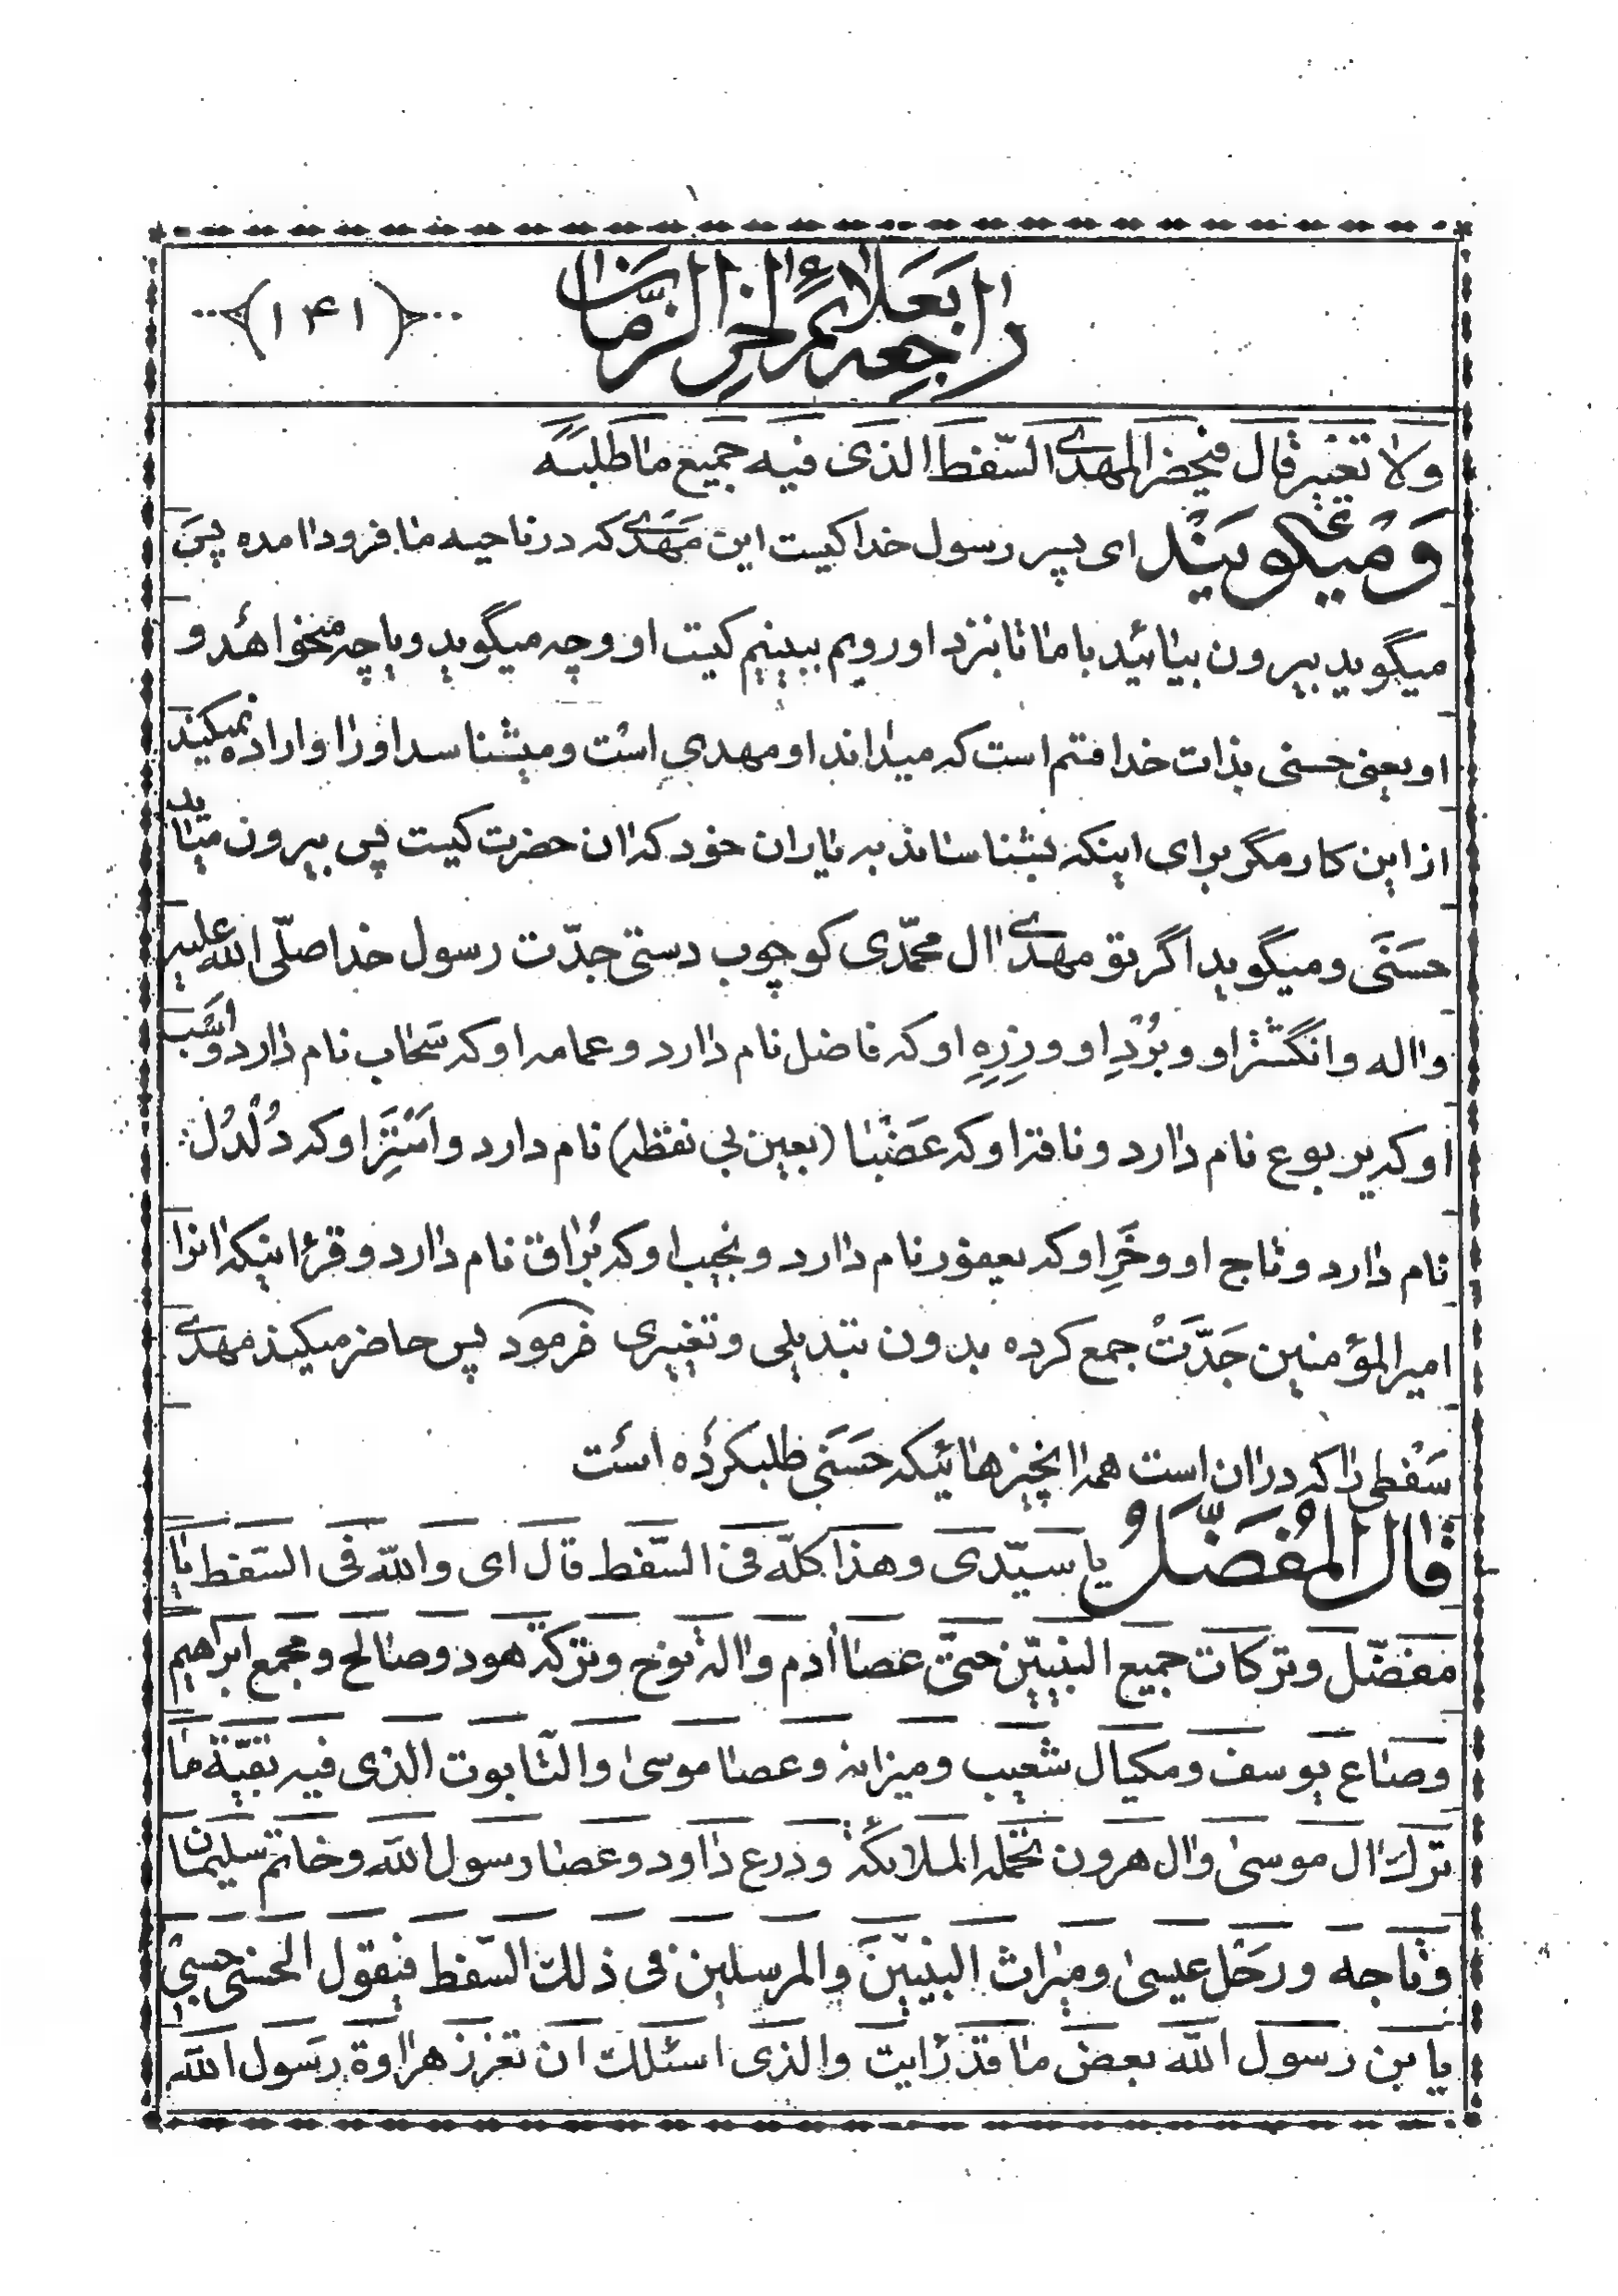 راجعه بعلائم اخر الزمان
(۱۴۱)
ولا تغییر قال فیحضر المهدی السّفط الذی فیه جمیع ما طلبه
وَ میگویند ای پسر رسول خدا کیست این مَهَدی که در ناحیه ما فرود امده پس
میگوید بیرون بیائید با ما تا بنزد او رویم ببینیم کیت او و چه میگوید و با چه میخواهد و
او یعنی حسنی بذات خدا قتم است که میداند او مهدی است و میشناسد او را و اراده نمیکند
از این کار مگر برای اینکه بشناساند به یاران خود که ان حضرت کیت پس بیرون میاید
حَسَنَی و میگوید اگر تو مهدی ال محمّدی کو چوب دستی جدّت رسول خدا صلّی الله علیه
و اله و انگشتر او و بُرْدِ او و زِرِهِ او که فاضل نام دارد و عمامه او که سَحٰاب نام دارد و اَسَب
او که یربوع نام دارد و ناقه او که عَضْبٰا (بعین بی نقطه) نام دارد و اَسْتَرِ او که دُلْدُل
نام دارد و تاج او و خَرِ او که یعفور نام دارد و نجیب او که بُرٰاق نام دارد و قرءٰ اینکه انرا
امیر المؤمنین جَدَّتْ جمع کرده بدون تبدیلی و تغییری فرمود پس حاضر میکند مهدی
سَفْطی را که در ان است همه انچیزهائیکه حَسَنَی طلبکرده است
قال المُفَضَّلُ یا سیّدی و هذا کلّه فی السّفط قال ای والله فی السّفط یا
مفضّل و ترکات جمیع النبیّین حتّی عصا ادم و اله نوح و ترکة هود و صالح و مجمع ابراهیم
و صاع یوسف و مکیال شعیب و میزانه و عصا موسی و التّابوت الذی فیه بقیّة ما
ترک ال موسی و ال هرون تحمله الملائکة و درع داود و عصا رسول الله و خاتم سلیمان
و تاجه و رَحْل عیسی و میراث النبیّینَ و المرسلین فی ذلک السّفط فیقول الحسنی حسبی
یا بن رسول الله بعض ما قد رایت و الذی اسئلک ان تغرز هراوة رسول الله